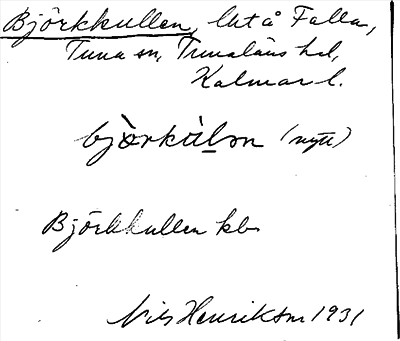 Björkkullen, lht å Falla,
Tuna sn, Tunaläns hd,
Kalmar l.
bjòrkùlən (nytt)
Björkkullen kb
Nils Henrikson 1931